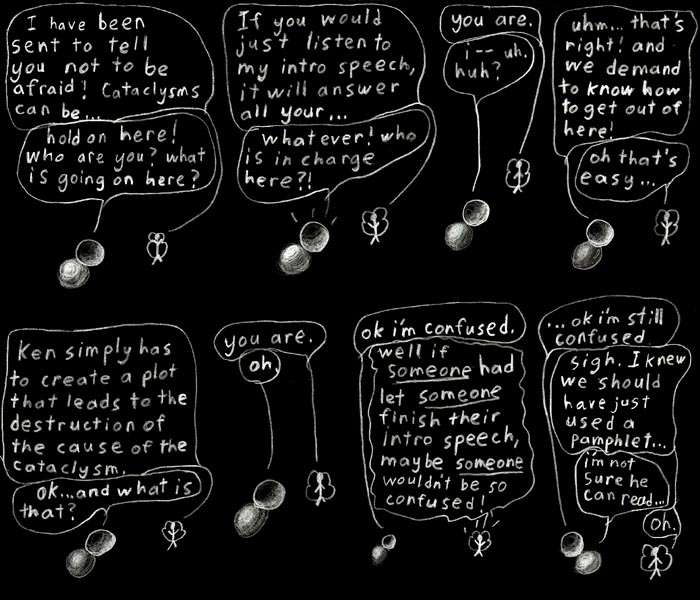 I have been
sent to tell
you not to be
afraid! Cataclysms
can be...
hold on here!
who are you? what
is going on here?
If you would
just listen to
my intro speech,
it will answer
all your...
whatever! who
is in charge
here?!
you are.
i-- uh.
huh?
uhm... that's
right! and
we demand
to know how
to get out of
here!
oh that's
easy...
Ken simply has
to create a plot
that leads to the
destruction of
the cause of the
cataclysm.
ok...and what is
that?
you are.
oh.
ok i'm confused.
well if
someone had
let someone
finish their
intro speech,
maybe someone
wouldn't be so
confused!
...ok i'm still
confused
sigh. I knew
we should
have just
used a
pamphlet...
i'm not
sure he
can read...
Oh.